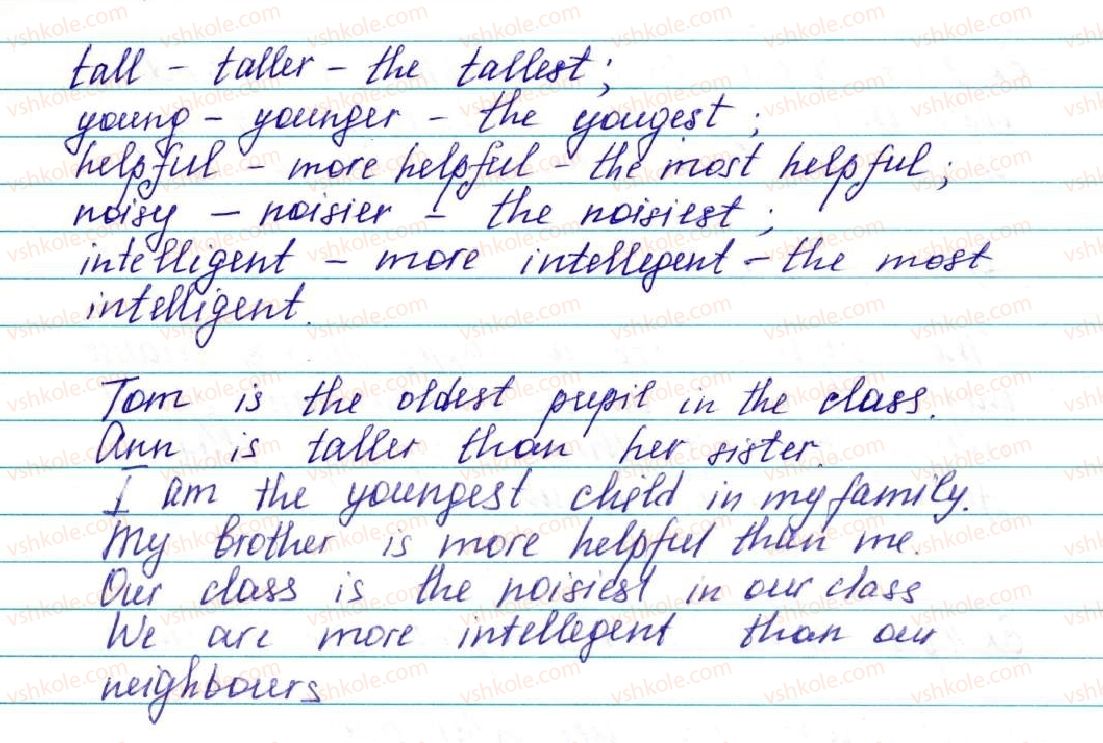 tall - taller - the tallest;
young - younger - the yougest;
helpful - more helpful - the most helpful;
noisy - noisier - the noisiest;
intelligent - more intellegent - the most
intelligent.
Tom is the oldest pupil in the class.
Ann is taller than her sister.
I am the youngest child in my family.
My brother is more helpful than me.
Our class is the noisiest in our class
We are more intellegent than our
neighbours